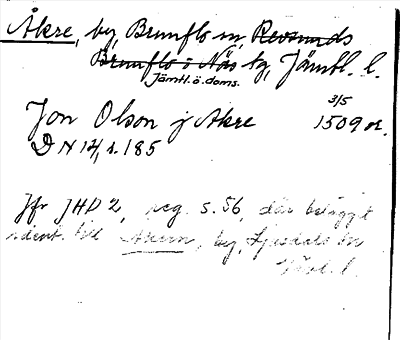 Åkre, by, Brunflo sn, Revsunds
Brunflo o Näs tg, Jämtl. l.
Jämtl. ö. doms.
Jon Olson j Akre 3/5 1509 or.
DN 14, s. 185
Jfr JHD 2, reg. s. 56, där belägget
ident. till Åkern, by, Ljusdals sn
l.